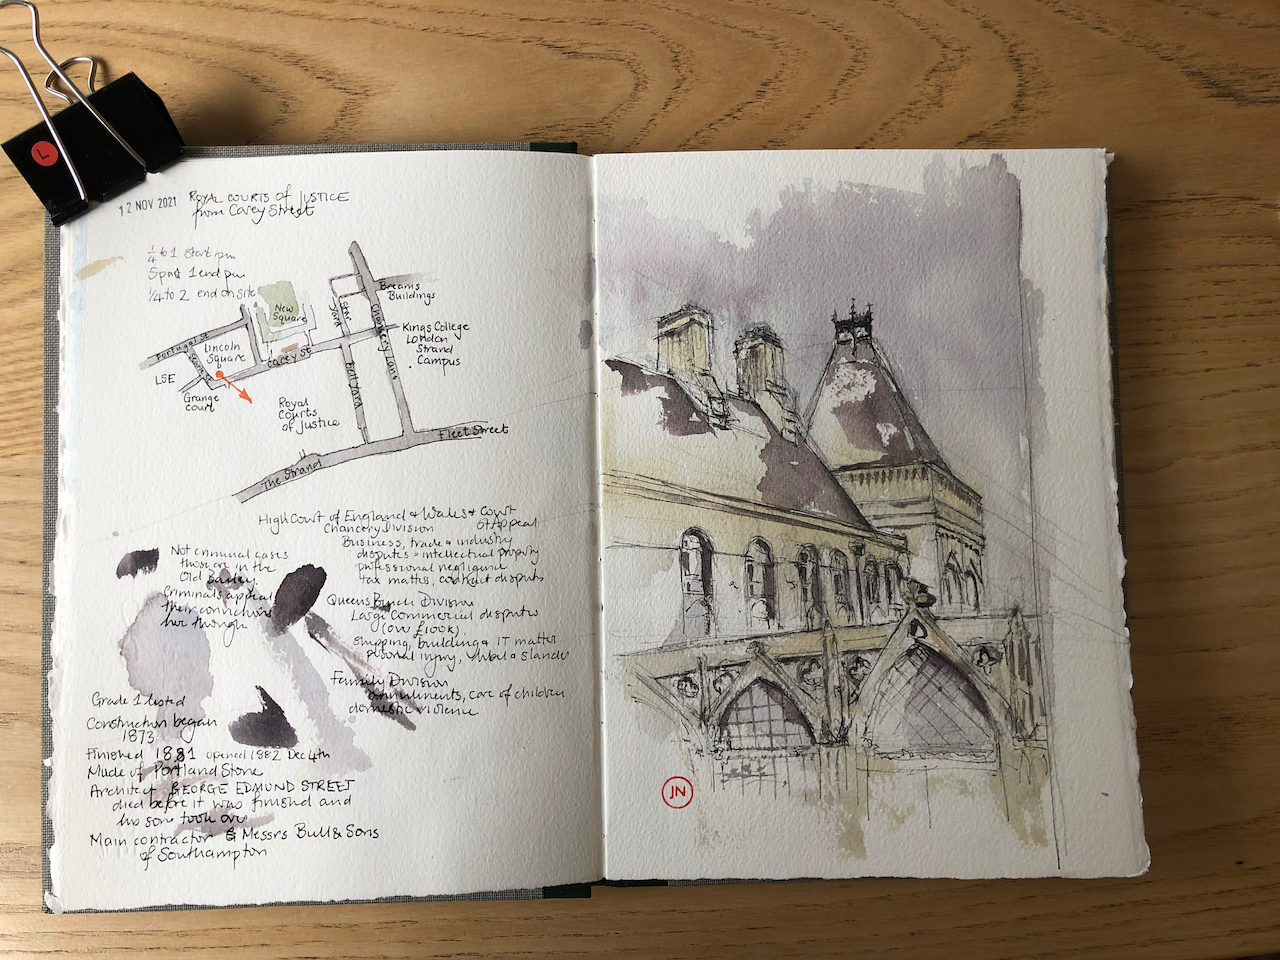 L
12 NOV 2021 ROYAL COURTS of JUSTICE
from Carey Street
1/4 to 1 start pm
5 past 1 end pen
1/4 to 2 end on site
Breams
Buildings
New
Square
Star
Yard
Chancery Lane
Kings College
London
Strand
Campus
Portugal St
Lincoln
Square
Carey St
Bell Yard
LSE
Grange
court
Royal
Courts
of Justice
Fleet Street
The Strand
High Court of England & Wales & Court
Chancery Division of Appeal
Business, trade & industry
disputes - intellectual property
professional negligence
tax matters, contract disputes
Not criminal cases
those are in the
Old Bailey.
Criminals appeal
their convictions
here though
Queens Bench Division
Large commercial disputes
(over £100k)
shipping, building & IT matters
personal injury, libel & slander
Family Division
care of children
domestic violence
Grade 1 listed
Construction began
1873
Finished 1881 opened 1882 Dec 4th
Made of Portland Stone
Architect GEORGE EDMUND STREET
died before it was finished and
his son took over
Main contractor Messrs Bull & Sons
of Southampton
JN